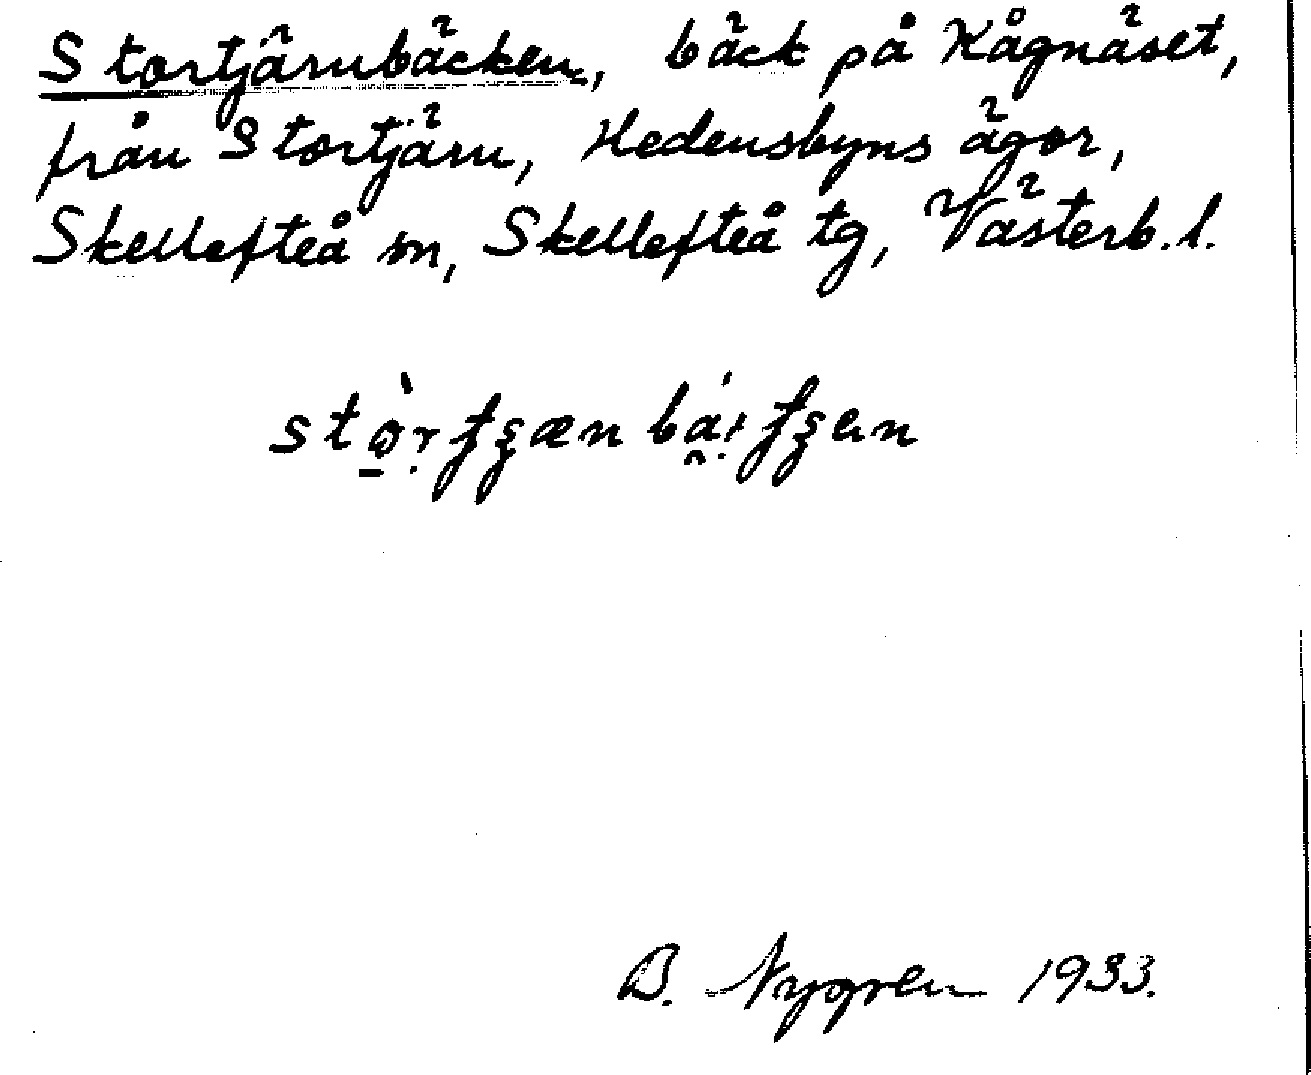 Stortjärnbäcken, bäck på Kågnäset,
från Stortjärn, Hedensbyns ägor,
Skellefteå sn, Skellefteå tg, Västerb. l.
B. Nygren 1933.